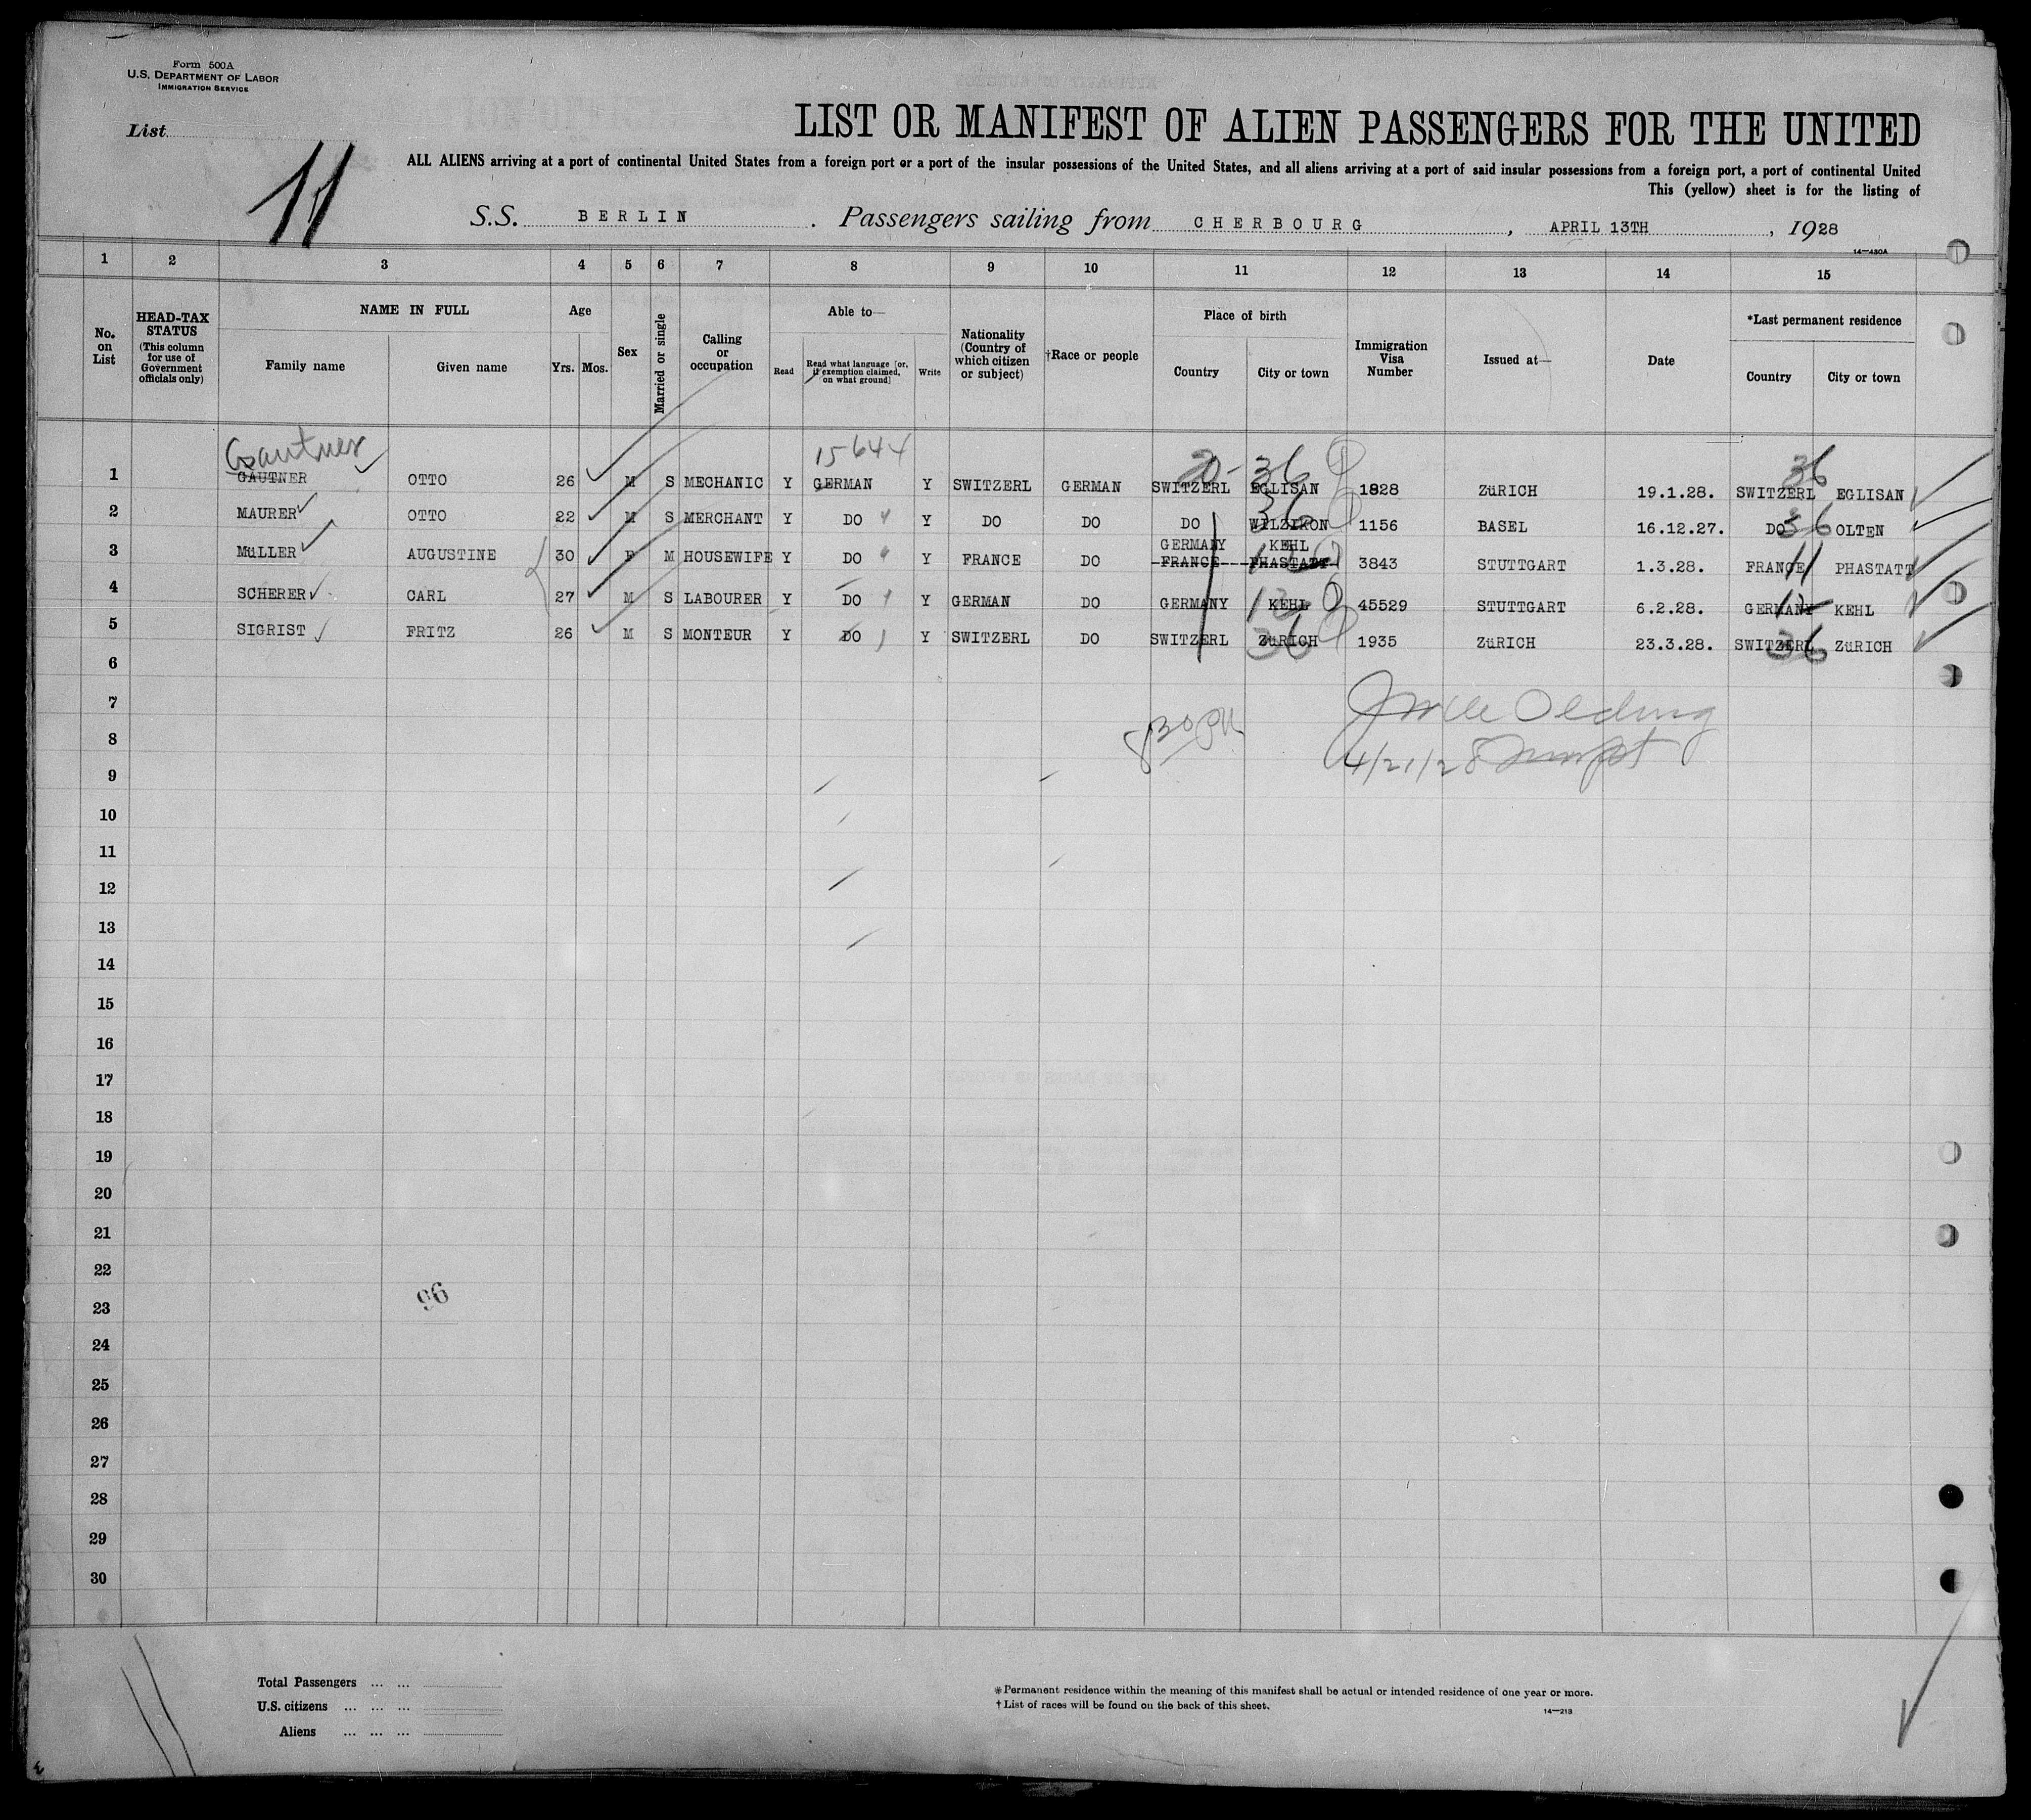 Form 500A
U.S. DEPARTMENT OF LABOR
IMMIGRATION SERVICE
List
11
LIST OR MANIFEST OF ALIEN PASSENGERS FOR THE UNITED
ALL ALIENS arriving at a port of continental United States from a foreign port or a port of the insular possessions of the United States, and all aliens arriving at a port of said insular possessions from a foreign port, a port of continental United
This (yellow) sheet is for the listing of
S.S. BERLIN . Passengers sailing from CHERBOURG , APRIL 13TH , 1928
14—430A
1 2 3 4 5 6 7 8 9 10 11 12 13 14 15
No. on List
HEAD-TAX STATUS (This column for use of Government officials only)
NAME IN FULL
Family name Given name
Age
Yrs. Mos.
Sex
Married or single
Calling or occupation
Able to—
Read Read what language [or, if exemption claimed, on what ground] Write
Nationality (Country of which citizen or subject)
†Race or people
Place of birth
Country City or town
Immigration Visa Number
Issued at—
Date
*Last permanent residence
Country City or town
Gautner 15644 20- 36 36
1 GAUTNER OTTO 26 M S MECHANIC Y GERMAN Y SWITZERL GERMAN SWITZERL EGLISAN 1828 ZüRICH 19.1.28. SWITZERL EGLISAN
2 MAURER OTTO 22 M S MERCHANT Y DO Y DO DO DO WILZIKON 36 1156 BASEL 16.12.27. DO 36 OLTEN
GERMANY KEHL
3 MüLLER AUGUSTINE 30 F M HOUSEWIFE Y DO Y FRANCE DO FRANCE PHASTADT 3843 STUTTGART 1.3.28. FRANCE 11 PHASTATT
4 SCHERER CARL 27 M S LABOURER Y DO Y GERMAN DO GERMANY KEHL 45529 STUTTGART 6.2.28. GERMANY 12 KEHL
5 SIGRIST FRITZ 26 M S MONTEUR Y DO Y SWITZERL DO SWITZERL ZüRICH 36 1935 ZüRICH 23.3.28. SWITZERL 36 ZüRICH
6
7
8
4/21/28
9
10
11
12
13
14
15
16
17
18
19
20
21
22
96
23
24
25
26
27
28
29
30
Total Passengers ... ...
U.S. citizens ... ... ...
Aliens ... ... ...
*Permanent residence within the meaning of this manifest shall be actual or intended residence of one year or more.
†List of races will be found on the back of this sheet.
14—213